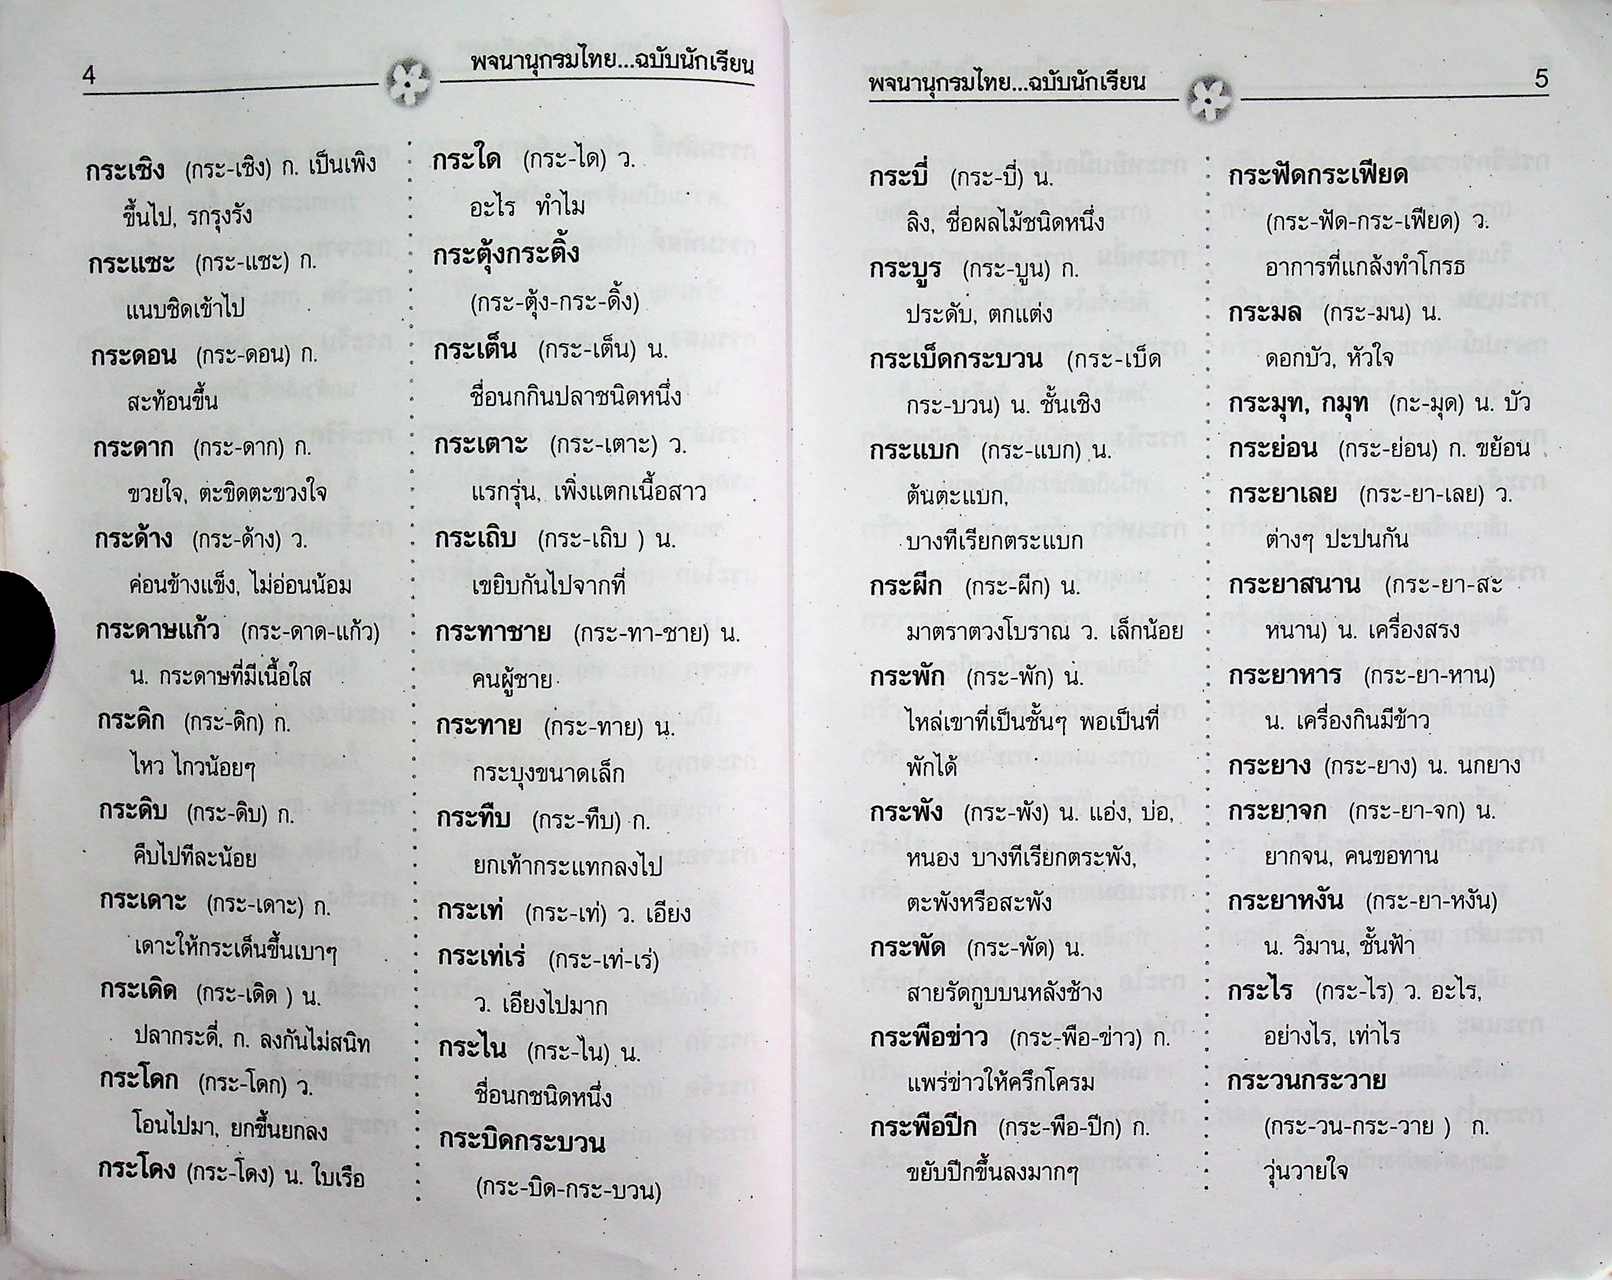 4
พจนานุกรมไทย...ฉบับนักเรียน
กระเชิง (กระ-เชิง) ก. เป็นเพิง
ขึ้นไป, รกรุงรัง
กระแซะ (กระ-แซะ) ก.
แนบชิดเข้าไป
กระดอน (กระ-ดอน) ก.
สะท้อนขึ้น
กระดาก (กระ-ดาก) ก.
ขวยใจ, ตะขิดตะขวงใจ
กระด้าง (กระ-ด้าง) ว.
ค่อนข้างแข็ง, ไม่อ่อนน้อม
กระดาษแก้ว (กระ-ดาด-แก้ว)
น. กระดาษที่มีเนื้อใส
กระดิก (กระ-ดิก) ก.
ไหว ไกวน้อยๆ
กระดิบ (กระ-ดิบ) ก.
คืบไปทีละน้อย
กระเดาะ (กระ-เดาะ) ก.
เดาะให้กระเด็นขึ้นเบาๆ
กระเดิด (กระ-เดิด ) น.
ปลากระดี่, ก. ลงกันไม่สนิท
กระโดก (กระ-โดก) ว.
โอนไปมา, ยกขึ้นยกลง
กระโดง (กระ-โดง) น. ใบเรือ
กระใด (กระ-ได) ว.
อะไร ทำไม
กระตุ้งกระติ้ง
(กระ-ตุ้ง-กระ-ดิ้ง)
กระเต็น (กระ-เต็น) น.
ชื่อนกกินปลาชนิดหนึ่ง
กระเตาะ (กระ-เตาะ) ว.
แรกรุ่น, เพิ่งแตกเนื้อสาว
กระเถิบ (กระ-เถิบ ) น.
เขยิบกันไปจากที่
กระทาชาย (กระ-ทา-ชาย) น.
คนผู้ชาย
กระทาย (กระ-ทาย) น.
กระบุงขนาดเล็ก
กระทืบ (กระ-ทืบ) ก.
ยกเท้ากระแทกลงไป
กระเท่ (กระ-เท่) ว. เอียง
กระเท่เร่ (กระ-เท่-เร่)
ว. เอียงไปมาก
กระไน (กระ-ไน) น.
ชื่อนกชนิดหนึ่ง
กระบิดกระบวน
(กระ-บิด-กระ-บวน)
พจนานุกรมไทย...ฉบับนักเรียน
5
กระบี่ (กระ-บี่) น.
ลิง, ชื่อผลไม้ชนิดหนึ่ง
กระบูร (กระ-บูน) ก.
ประดับ, ตกแต่ง
กระเบ็ดกระบวน (กระ-เบ็ด
กระ-บวน) น. ชั้นเชิง
กระแบก (กระ-แบก) น.
ต้นตะแบก,
บางทีเรียกตระแบก
กระผีก (กระ-ผีก) น.
มาตราตวงโบราณ ว. เล็กน้อย
กระพัก (กระ-พัก) น.
ไหล่เขาที่เป็นชั้นๆ พอเป็นที่
พักได้
กระพัง (กระ-พัง) น. แอ่ง, บ่อ,
หนอง บางทีเรียกตระพัง,
ตะพังหรือสะพัง
กระพัด (กระ-พัด) น.
สายรัดกูบบนหลังช้าง
กระพือข่าว (กระ-พือ-ข่าว) ก.
แพร่ข่าวให้ครึกโครม
กระพือปีก (กระ-พือ-ปีก) ก.
ขยับปีกขึ้นลงมากๆ
กระฟัดกระเฟียด
(กระ-ฟัด-กระ-เฟียด) ว.
อาการที่แกล้งทำโกรธ
กระมล (กระ-มน) น.
ดอกบัว, หัวใจ
กระมุท, กมุท (กะ-มุด) น. บัว
กระย่อน (กระ-ย่อน) ก. ขย้อน
กระยาเลย (กระ-ยา-เลย) ว.
ต่างๆ ปะปนกัน
กระยาสนาน (กระ-ยา-สะ
หนาน) น. เครื่องสรง
กระยาหาร (กระ-ยา-หาน)
น. เครื่องกินมีข้าว
กระยาง (กระ-ยาง) น. นกยาง
กระยาจก (กระ-ยา-จก) น.
ยากจน, คนขอทาน
กระยาหงัน (กระ-ยา-หงัน)
น. วิมาน, ชั้นฟ้า
กระไร (กระ-ไร) ว. อะไร,
อย่างไร, เท่าไร
กระวนกระวาย
(กระ-วน-กระ-วาย ) ก.
วุ่นวายใจ